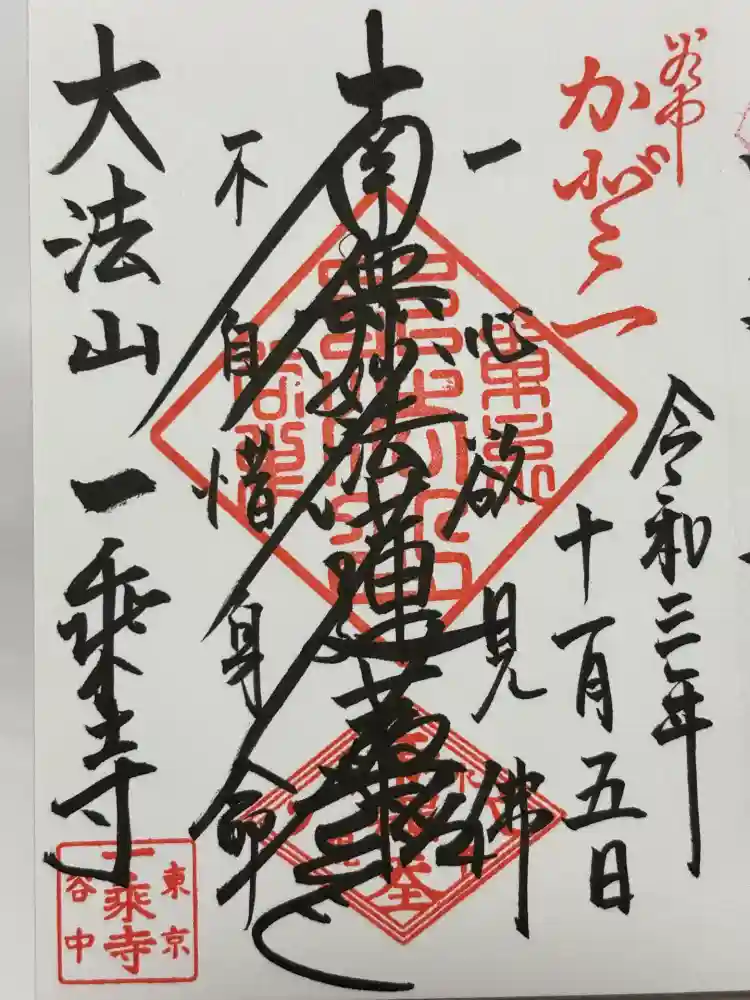 谷中
令和三年
十一月五日
一心欲見佛
南無妙法蓮華経
不自惜身命
大法山 一乗寺
東京
一乗寺
谷中